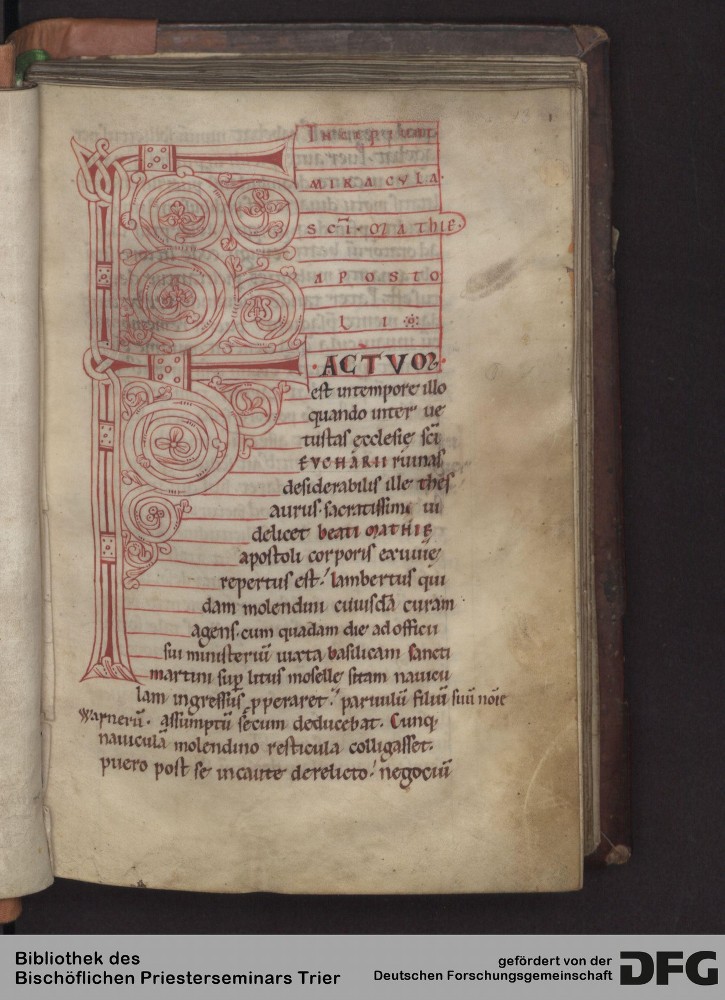 INCIPIUNT
MIRACVLA
SCĪ MATHIE
APOSTO
LI
ACTVM
est in tempore illo
quando inter ue
tustas ecclesię scī
EVCHARII ruinas
desiderabilis ille thes
aurus sacratissimi ui
delicet beati MATHIĘ
apostoli corporis exuuię
repertus est. lambertus qui
dam molendini cuiusdā curam
agens. cum quadam die ad officii
sui ministeriū iuxta basilicam sancti
martini sup litus moselle sitam nauicu
lam ingressus pperaret. paruulū filiū suū nōie
Warnerū. assumptū secum deducebat. Cunq;
nauiculā molendino resticula colligasset.
puero post se incaute derelicto. negociū
Bibliothek des
Bischöflichen Priesterseminars Trier
gefördert von der
Deutschen Forschungsgemeinschaft
DFG